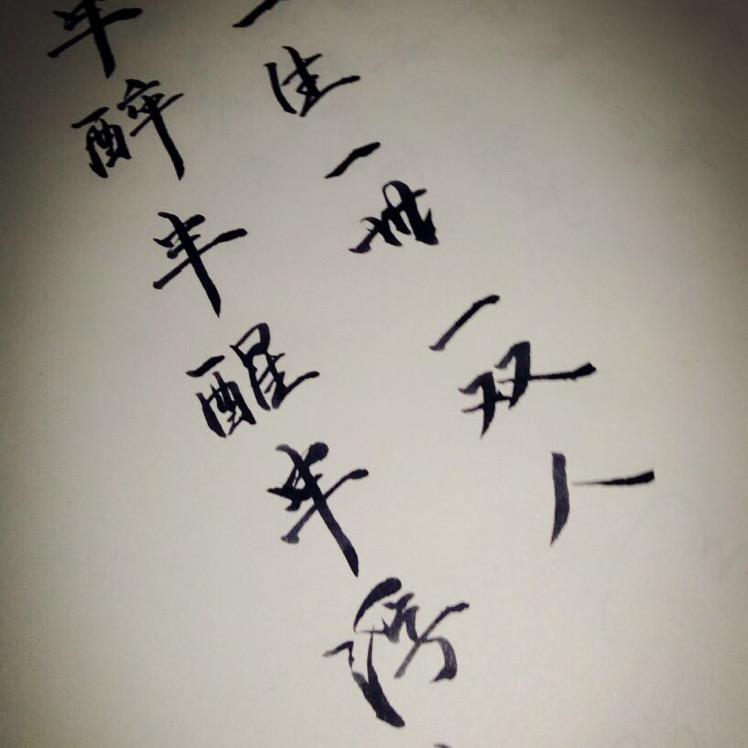 一生一世一双人
半醉半醒半浮